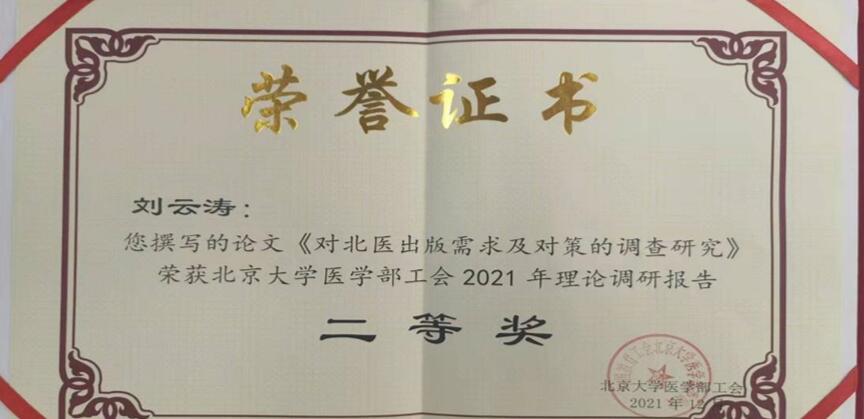 荣誉证书
刘云涛：
您撰写的论文《对北医出版需求及对策的调查研究》
荣获北京大学医学部工会 2021 年理论调研报告
二等奖
北京大学医学部工会
2021 年 12 月